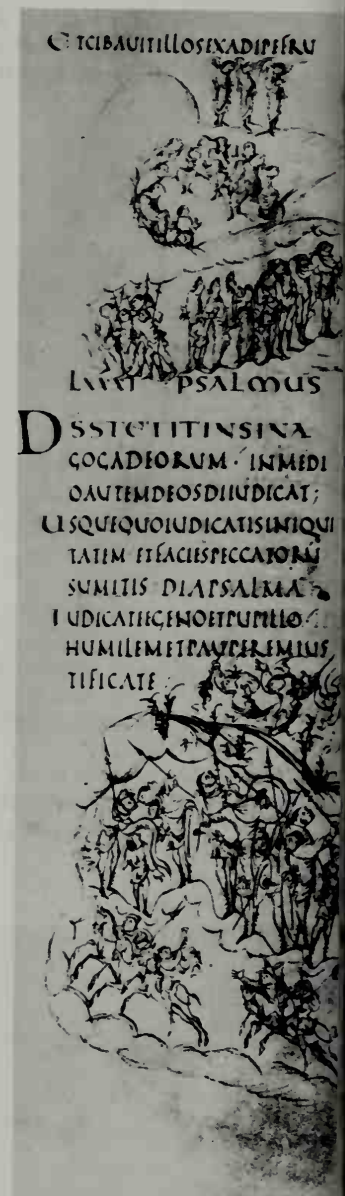 ETCIBAUITILLOSEXADIPEFRU
LXXXI PSALMUS
DSSTETITINSINA
GOGADEORUM · INMEDI
OAUTEMDEOSDIIUDICAT;
USQUEQUOIUDICATISINIQUI
TATEM ETFACIESPECCATORU
SUMITIS DIAPSALMA
IUDICATEEGENOETPUPILLO ·
HUMILEMETPAUPEREMIUS
TIFICATE